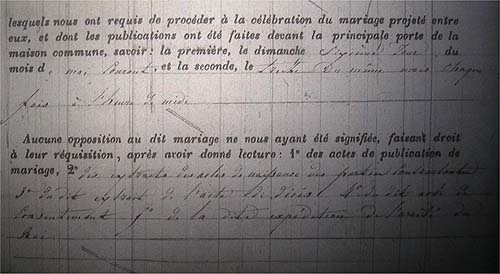 lesquels nous ont requis de procéder à la célébration du mariage projeté entre
eux, et dont les publications ont été faites devant la principale porte de la
maison commune, savoir: la première, le dimanche sixième jour du
mois d e mai courant, et la seconde, le treize du même mois chaque
fois à l'heure de midi
Aucune opposition au dit mariage ne nous ayant été signifiée, faisant droit
à leur réquisition, après avoir donné lecture: 1º des actes de publication de
mariage, 2º des extraits des actes de naissance des parties contractantes
3º du dit extrait de l'acte de décès 4º du dit acte de
consentement 5º de la dite expédition de l'arrêté du